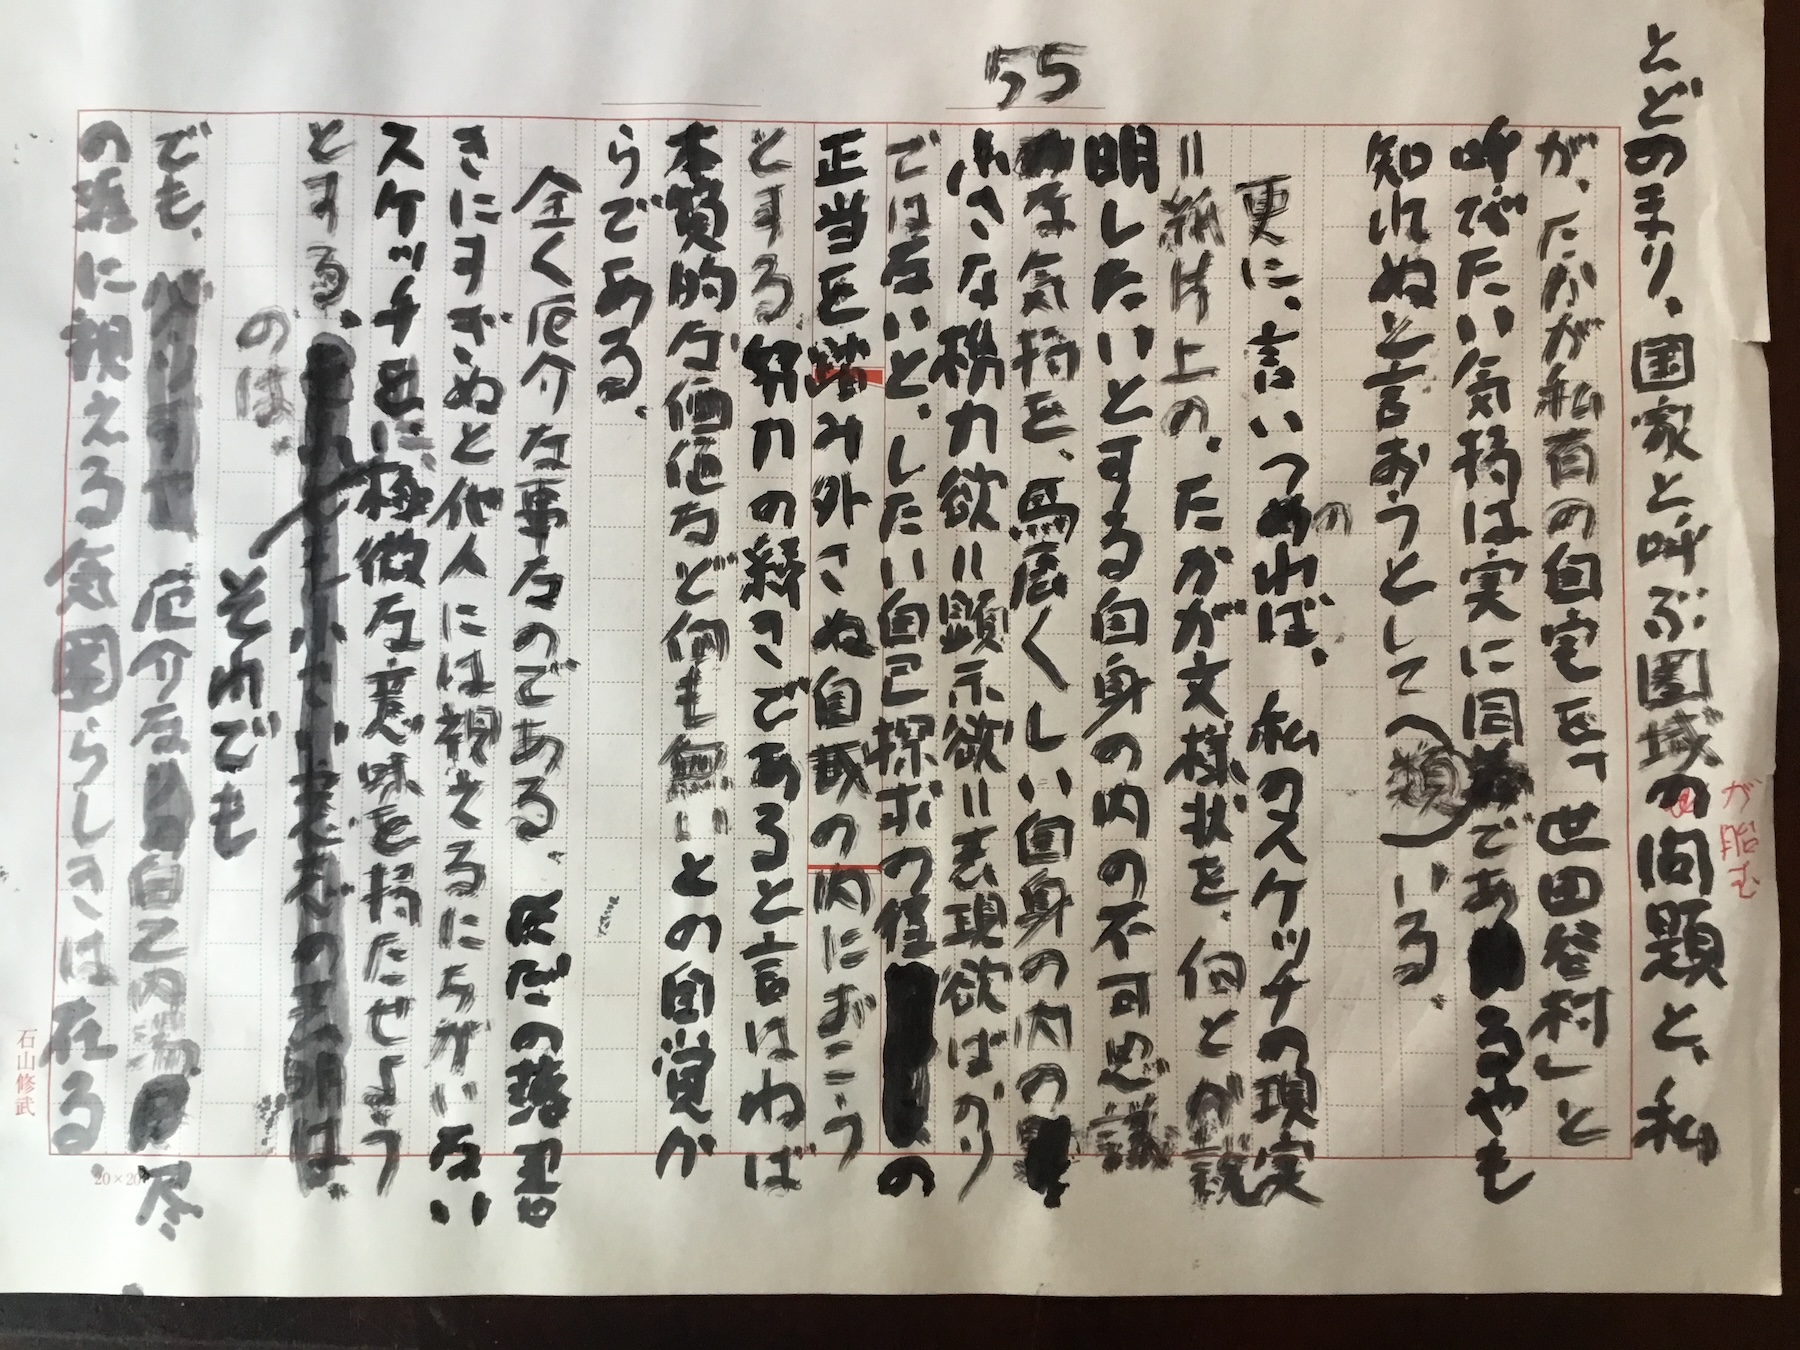 55
とどのまり、国家と呼ぶ圏域の問題と、私
が胎む
が、たかが私有の自宅を「世田谷村」と
呼びたい気持は実に同じであるやも
知れぬと言おうとして(類)いる。
更に、言いつめれば、私のスケッチの現実
の
=紙片上の、たかが文様状を、何とか説
明したいとする自身の内の不可思議
な気持を、馬鹿くしい自身の内の
小さな権力欲=顕示欲=表現欲ばかり
ではないと、したい自己探求の径の
正当を踏み外さぬ自裁の内におこう
とする努力の緒さであると言はねば
本質的な価値など何も無いとの自覚か
らである。
全く厄介な事なのである。ただの落書
きにすぎぬと他人には視えるにちがいない
スケッチをに、極微な意味を持たせよう
とする、
のは。
それでも
でも、厄介な自己内部
の涯に視える気圏らしきは在る。
石山修武
20×20